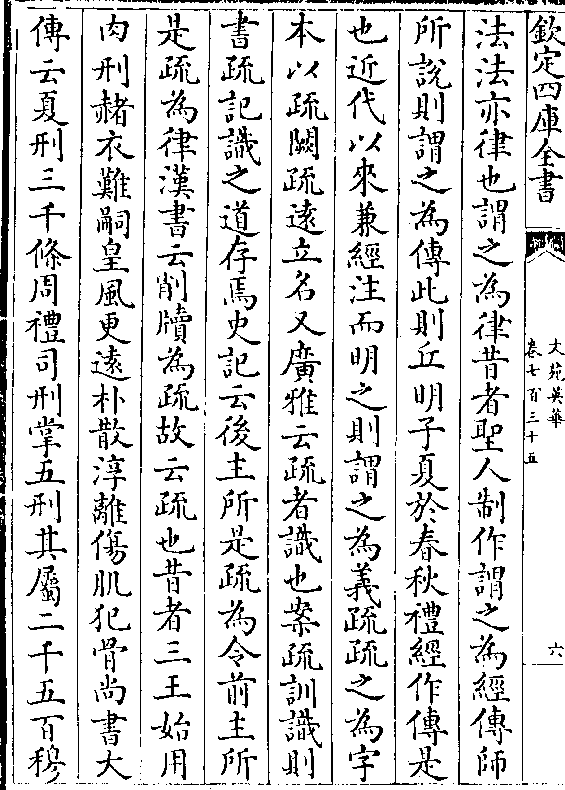 欽定四庫全書
文苑英華
卷七百三十五
六
法法亦律也謂之為律昔者聖人制作謂之為經傳師
所說則謂之為傳此則丘明子夏於春秋禮經作傳是
也近代以來兼經注而明之則謂之為義疏疏之為字
本以疏闕疏遠立名又廣雅云疏者識也案疏訓識則
書疏記識之道存焉史記云後主所是疏為令前主所
是疏為律漢書云削牘為疏故云疏也昔者三王始用
肉刑赭衣難嗣皇風更遠朴散淳離傷肌犯骨尚書大
傳云夏刑三千條周禮司刑掌五刑其屬二千五百穆